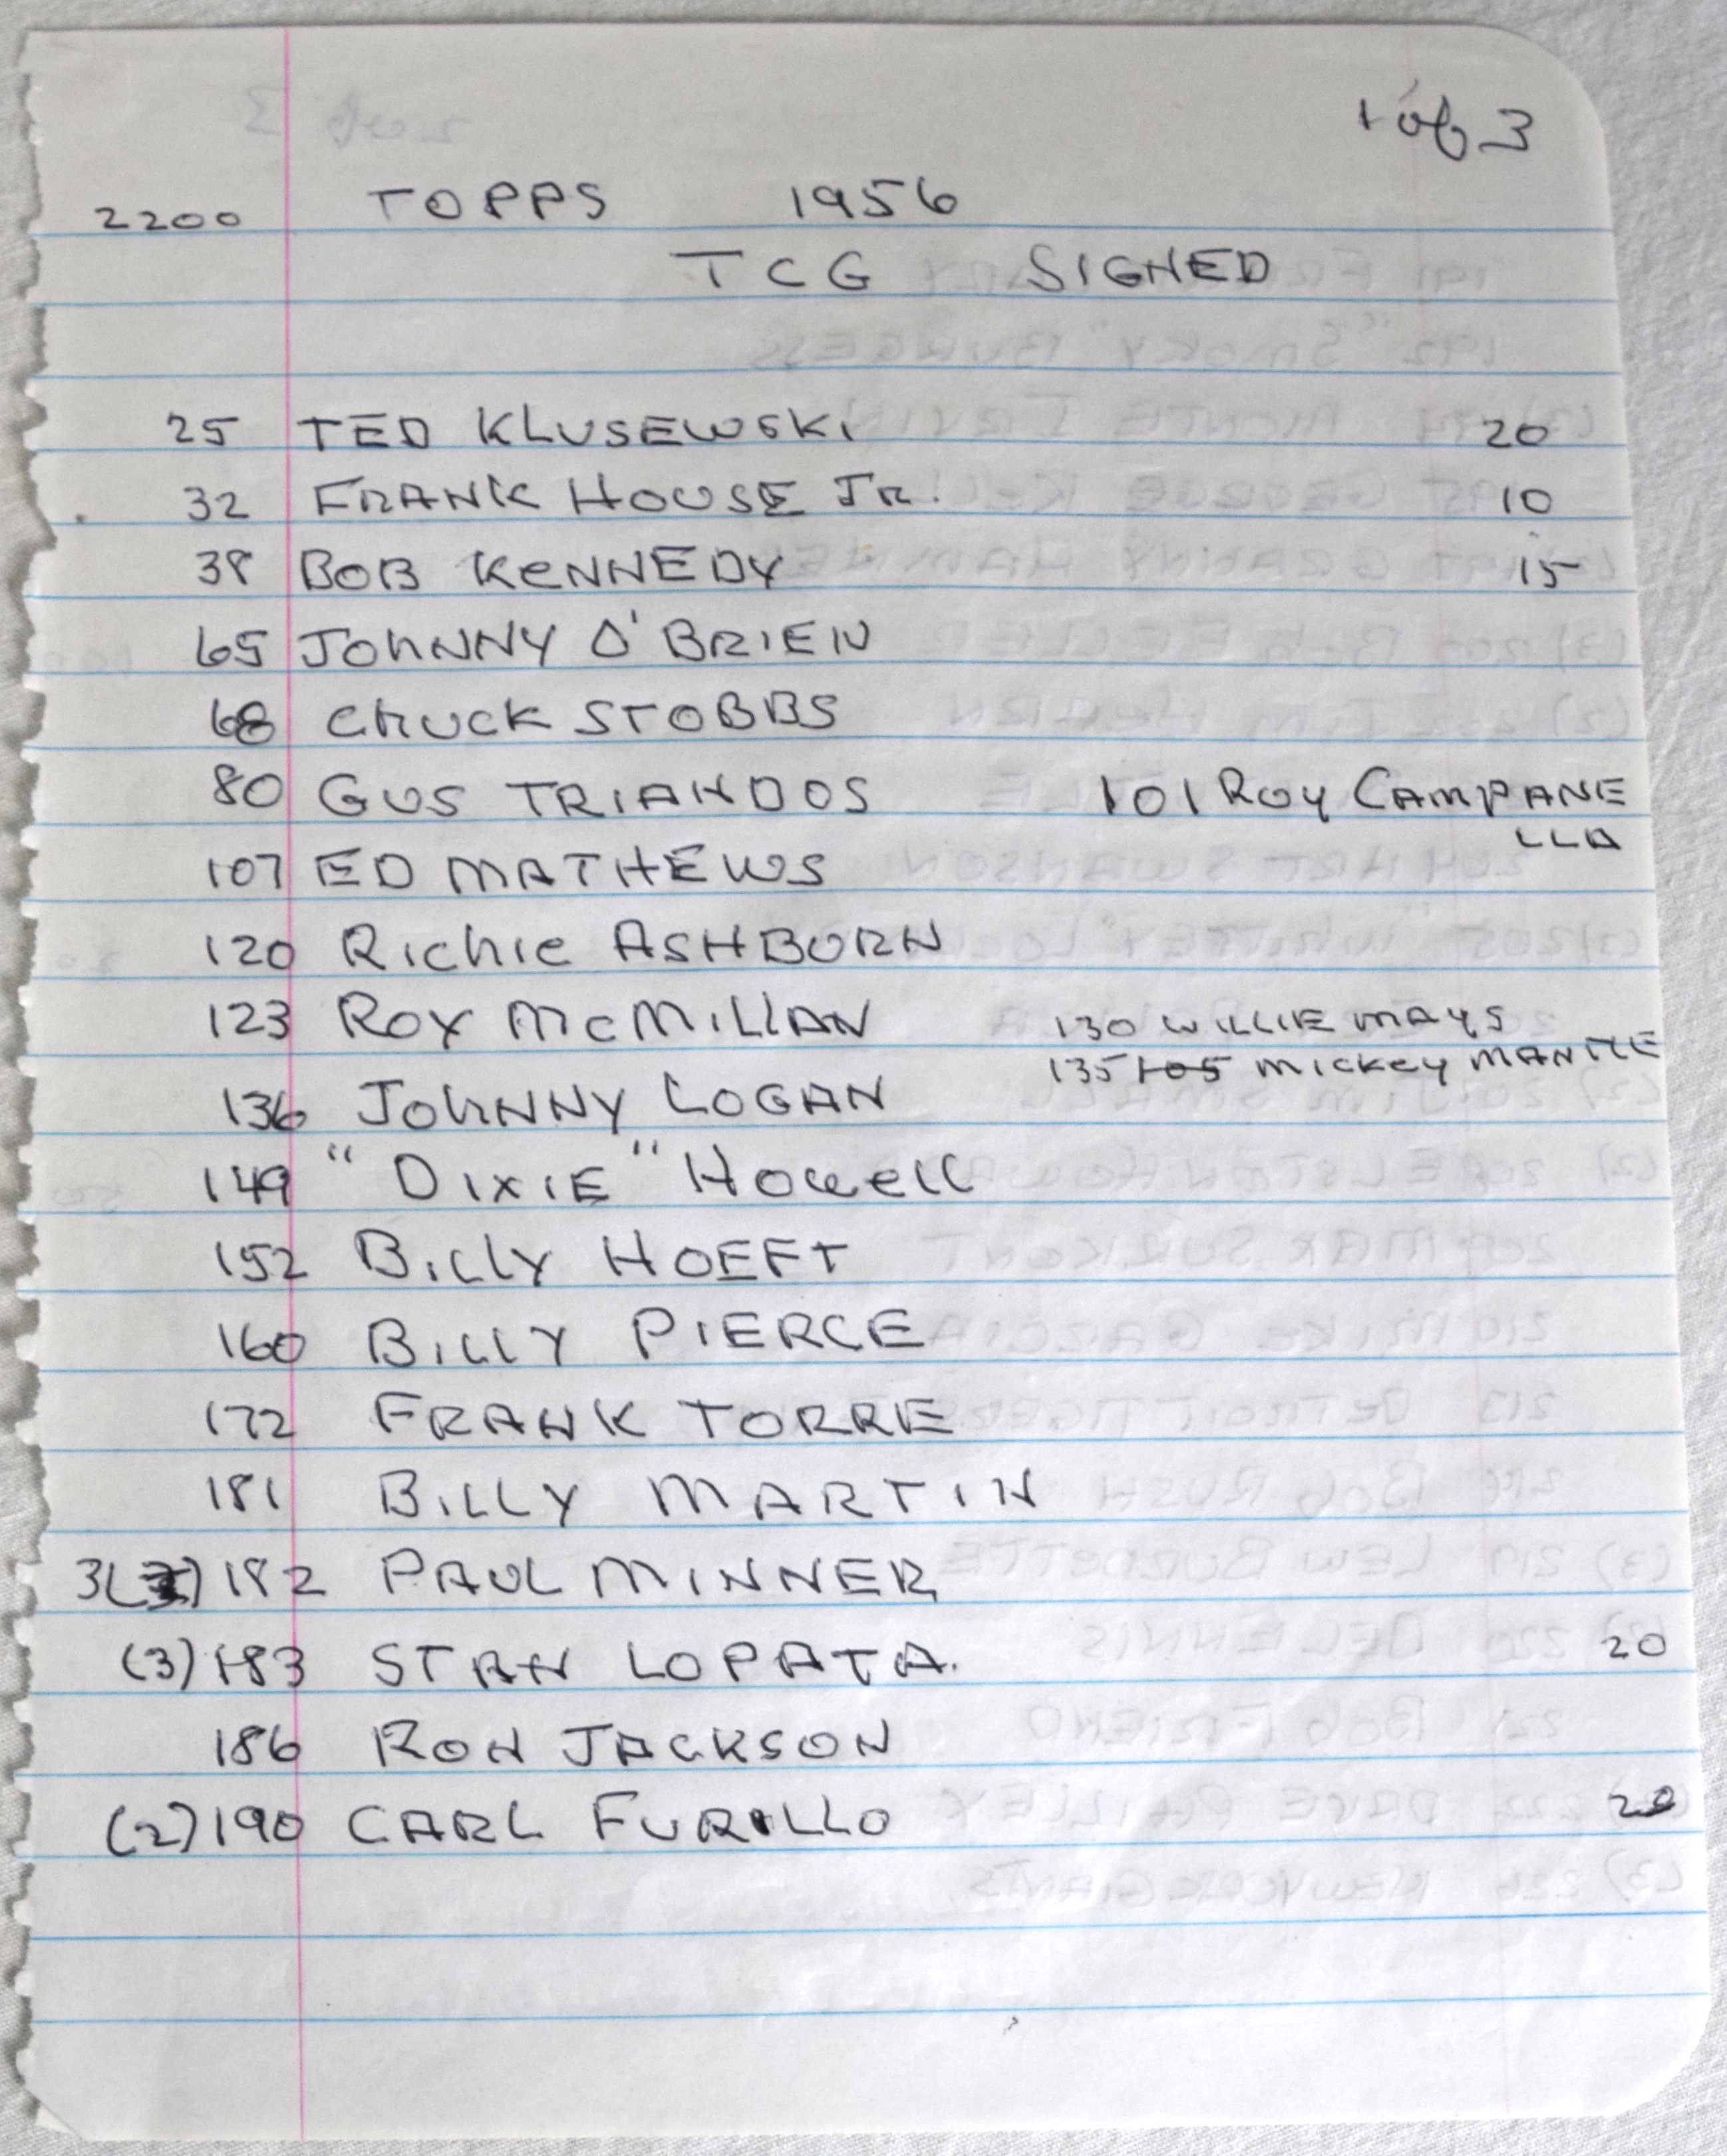 1 of 3
2200 TOPPS 1956
TCG SIGNED
25 TED KLUSEWSKI 20
32 FRANK HOUSE JR. 10
38 BOB KENNEDY 15
65 JOHNNY O'BRIEN
68 CHUCK STOBBS
80 GUS TRIANDOS 101 ROY CAMPANE
LLA
107 ED MATHEWS
120 RICHIE ASHBORN
123 ROY MCMILLAN 130 WILLIE MAYS
135 105 MICKEY MANTLE
136 JOHNNY LOGAN
149 "DIXIE" HOWELL
152 BILLY HOEFT
160 BILLY PIERCE
172 FRANK TORRE
181 BILLY MARTIN
3( ) 182 PAUL MINNER
(3) 183 STAN LOPATA. 20
186 RON JACKSON
(2) 190 CARL FURILLO 20